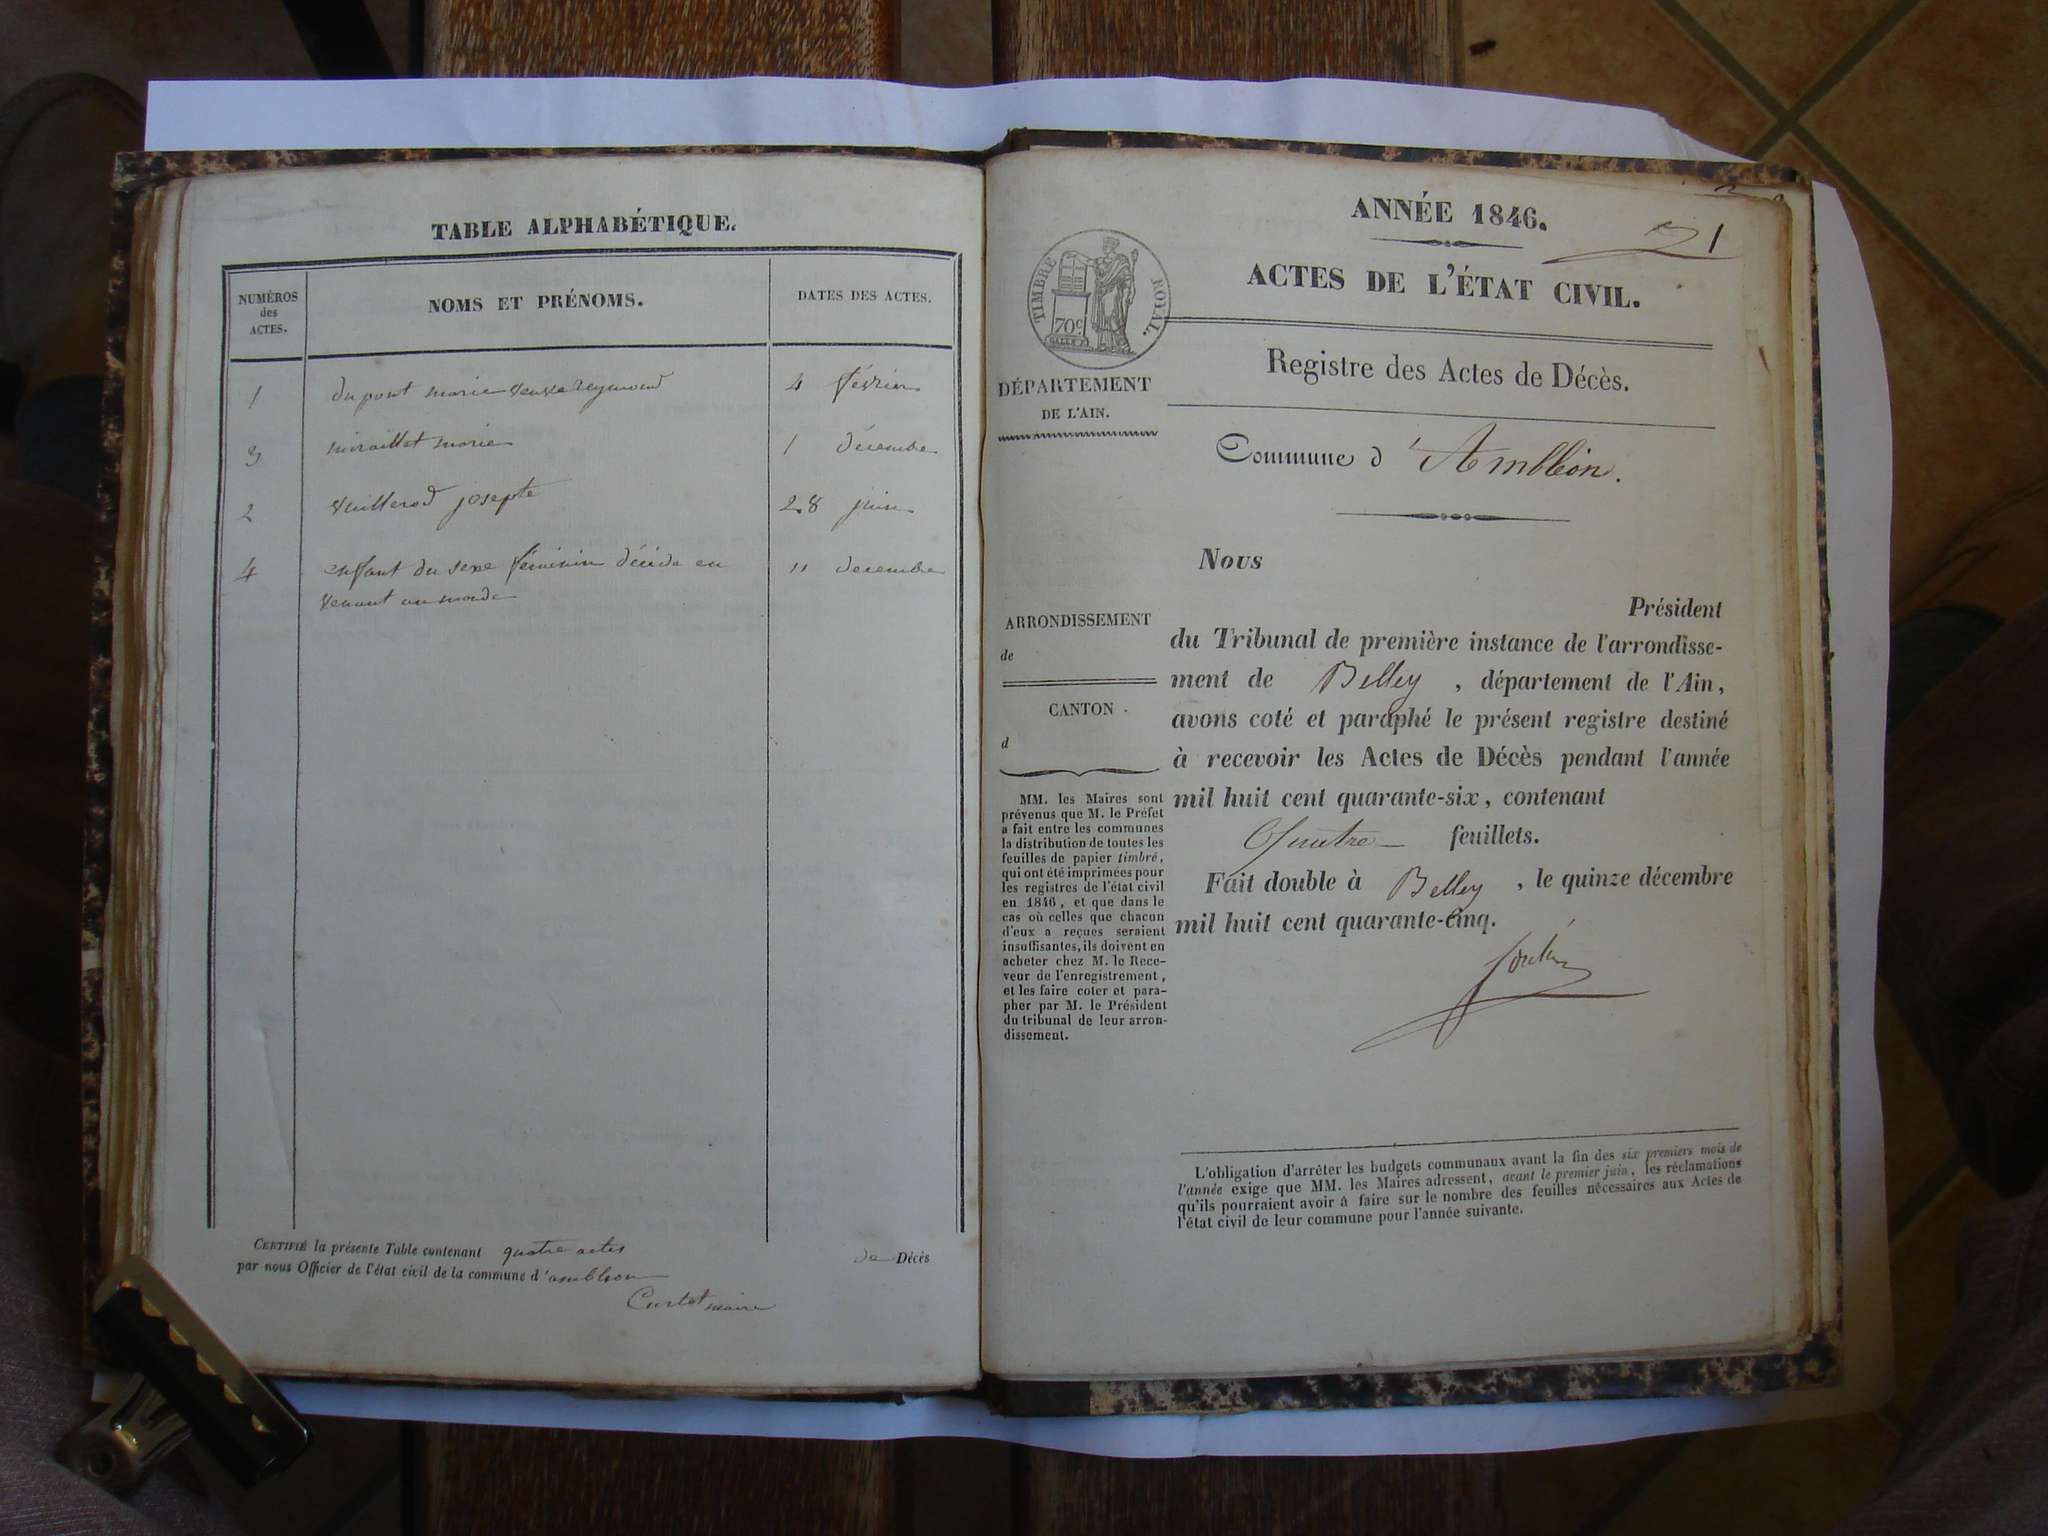 TABLE ALPHABÉTIQUE.
NUMÉROS
des
ACTES.
NOMS ET PRÉNOMS.
DATES DES ACTES.
1 dupont marie veuve Reymond 4 février
3 miraillet marie 1 décembre
2 vuillerod josepte 28 juin
4 enfant du sexe féminin décédé en 11 decembre
venant au monde
CERTIFIÉ la présente Table contenant quatre actes de Décès
par nous Officier de l'état civil de la commune d'ambleon
Curtet maire
ANNÉE 1846.
1
ACTES DE L'ÉTAT CIVIL.
TIMBRE ROYAL.
70c
DÉPARTEMENT
DE L'AIN.
Registre des Actes de Décès.
Commune d'Ambléon.
ARRONDISSEMENT
de
CANTON
d
MM. les Maires sont
prévenus que M. le Préfet
a fait entre les communes
la distribution de toutes les
feuilles de papier timbré,
qui ont été imprimées pour
les registres de l'état civil
en 1846, et que dans le
cas où celles que chacun
d'eux a reçues seraient
insuffisantes, ils doivent en
acheter chez M. le Rece-
veur de l'enregistrement,
et les faire coter et para-
pher par M. le Président
du tribunal de leur arron-
dissement.
Nous
Président
du Tribunal de première instance de l'arrondisse-
ment de Belley, département de l'Ain,
avons coté et paraphé le présent registre destiné
à recevoir les Actes de Décès pendant l'année
mil huit cent quarante-six, contenant
Quatre feuillets.
Fait double à Belley, le quinze décembre
mil huit cent quarante-cinq.
L'obligation d'arrêter les budgets communaux avant la fin des six premiers mois de
l'année exige que MM. les Maires adressent, avant le premier juin, les réclamations
qu'ils pourraient avoir à faire sur le nombre des feuilles nécessaires aux Actes de
l'état civil de leur commune pour l'année suivante.